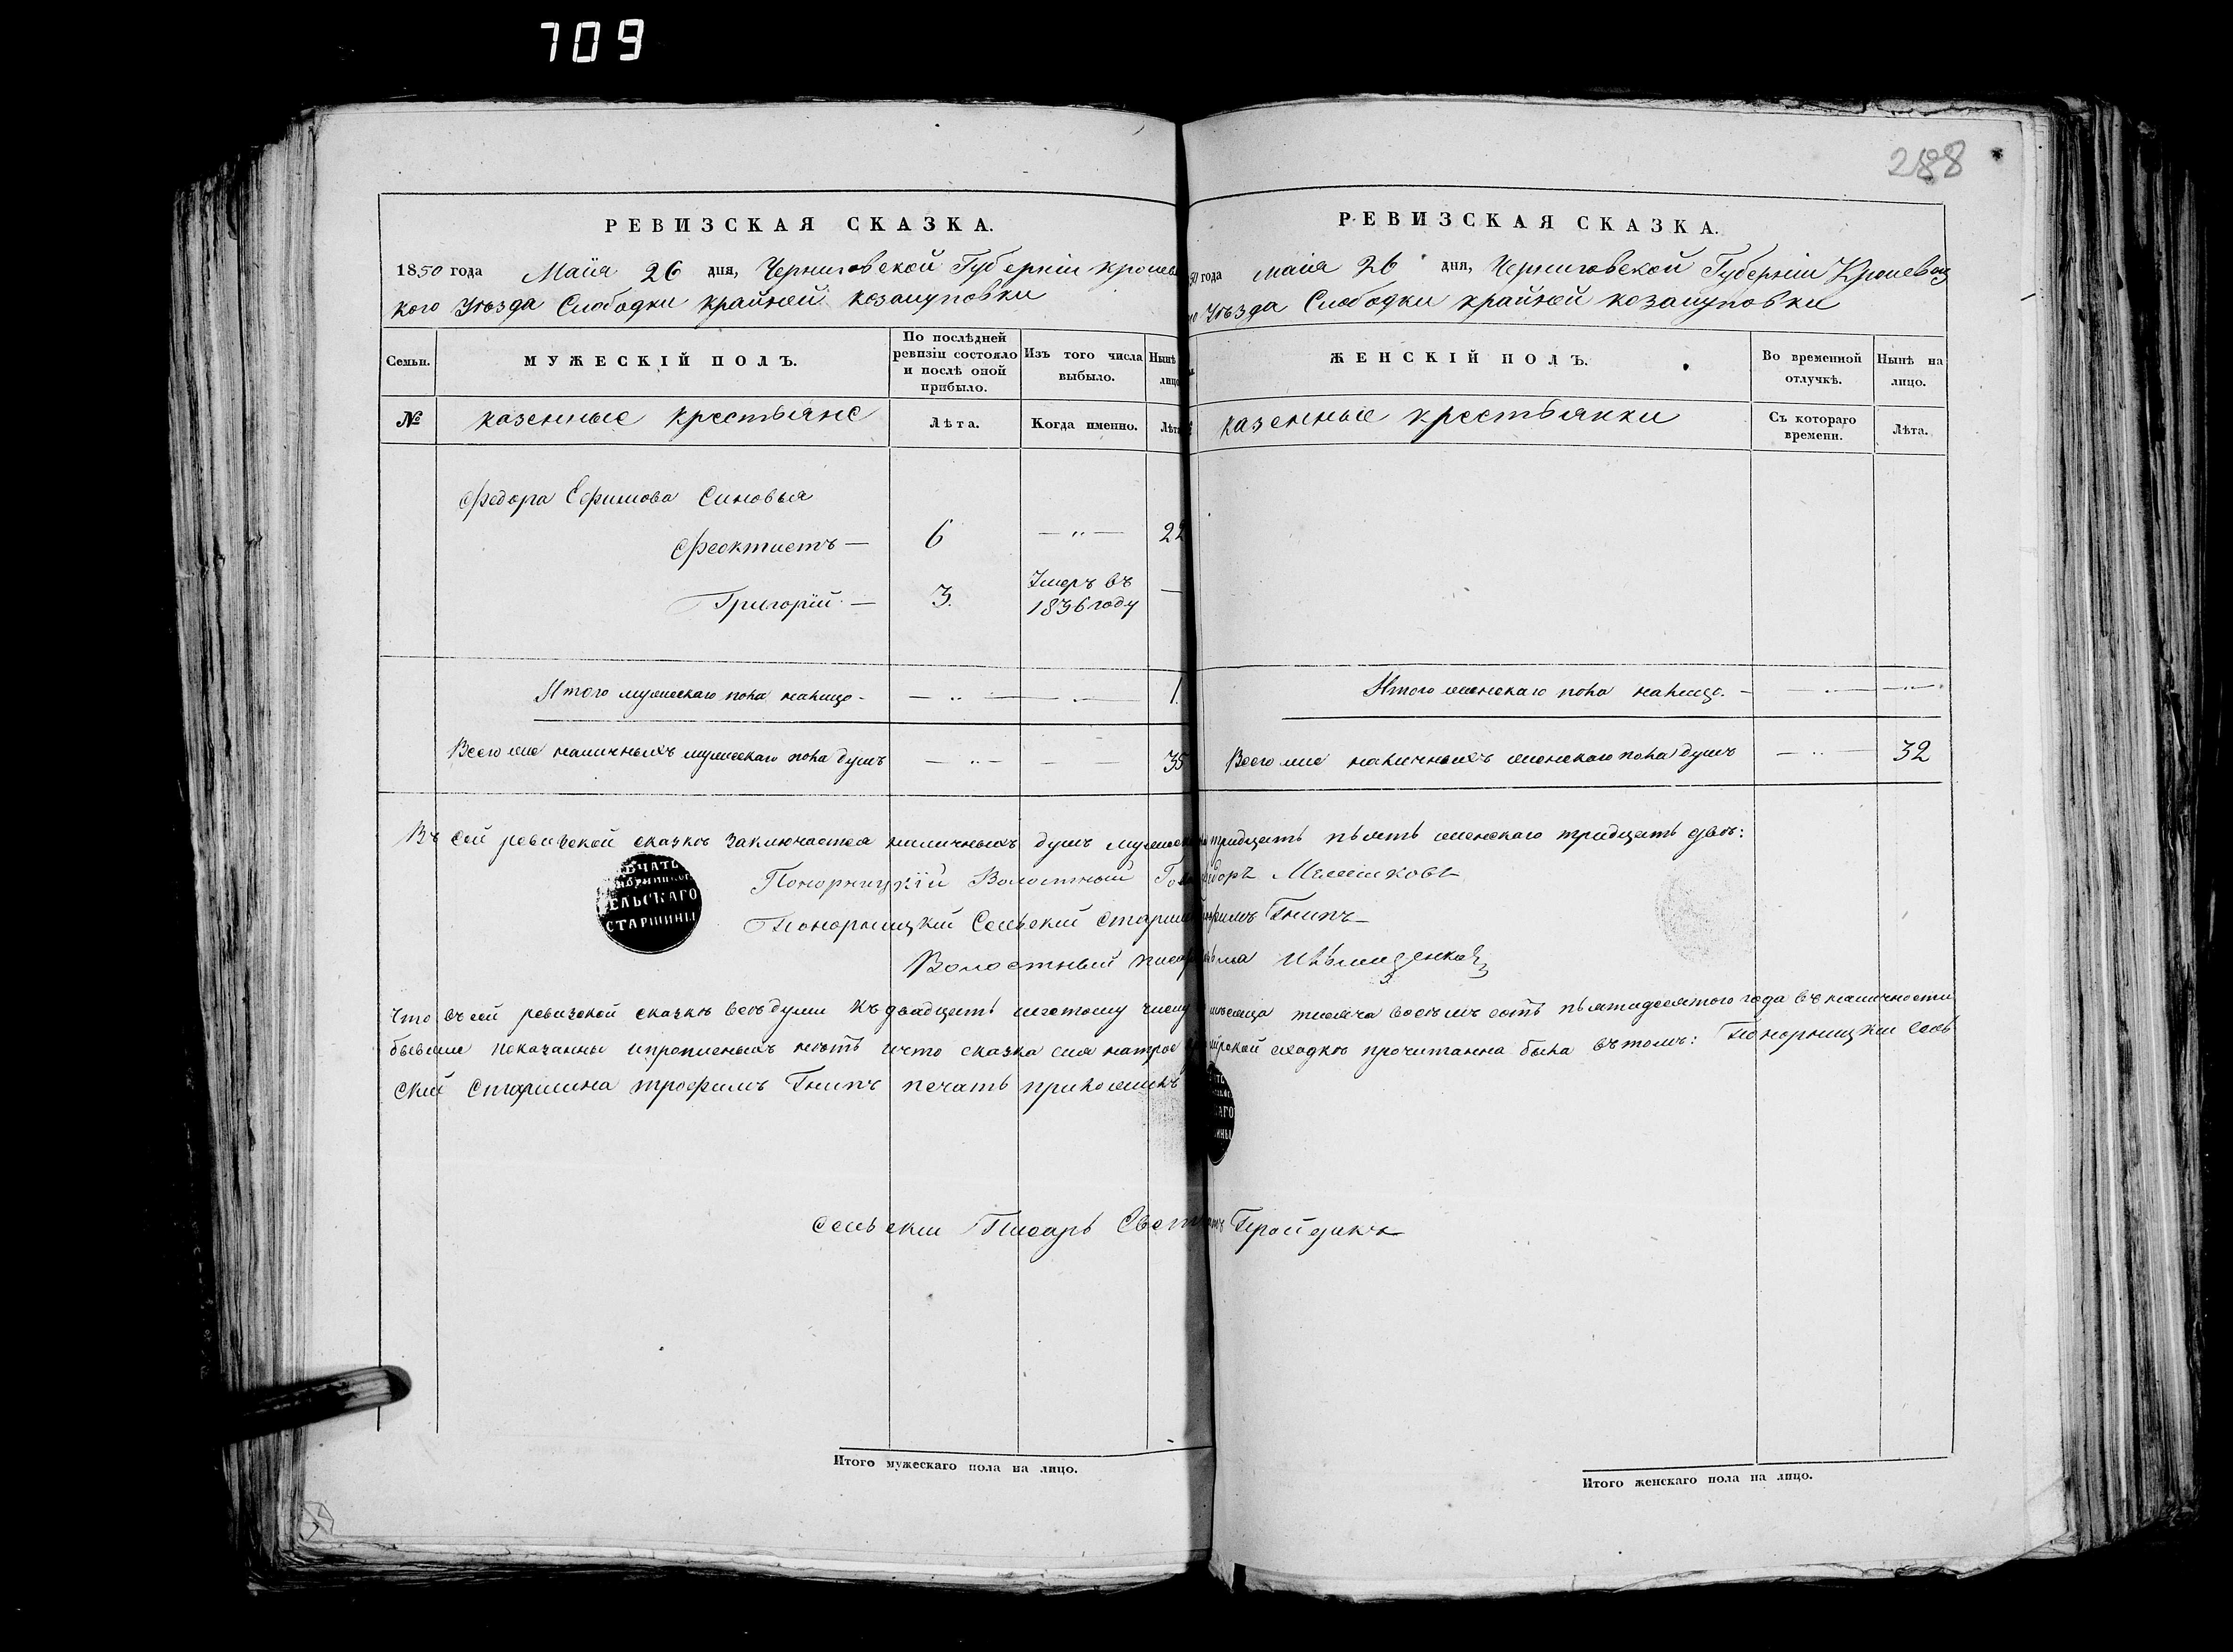 709
288
РЕВИЗСКАЯ СКАЗКА.
1850 года Маія 26 дня, Черниговской Губерніи кролев
кого Уѣзда Слободки крайней козацуповки
Семьи.
МУЖЕСКІЙ ПОЛЪ.
По послѣдней ревизіи состояло и послѣ оной прибыло.
Изъ того числа выбыло.
Нынѣ
лицо
№
казенные крестьяне
Лѣта.
Когда именно.
Лѣта
Федора Ефимова Синовья
Феоктистъ — 6 — „ — 22
Григорій — 3. Умеръ въ
1836 году —
Итого мужескаго пола налицо - 1.
Всего же наличныхъ мужескаго пола душъ 35
РЕВИЗСКАЯ СКАЗКА.
50 года маія 26 дня, Черниговской Губерніи Кролевец
го Уѣзда Слободки крайней козацуповки
ЖЕНСКІЙ ПОЛЪ.
Во временной отлучкѣ.
Нынѣ на лицо.
казенные крестьянки
Съ котораго времени.
Лѣта.
Итого женскаго пола налицо. -
Всего же наличныхъ женскаго пола душъ 32
Въ сей ревизской сказкѣ заключается наличныхъ душъ тридцать пьять женскаго тридцать двѣ:
Понорницкій Волостный
Понорницкій Сельскій Гнипъ
Волостный
ПЕЧАТЬ
СЕЛЬСКАГО
СТАРШИНЫ
Что въ сей ревизской сказкѣ всѣ души къ двадцать шестому числу тисяча восѣмъ сотъ пьятидесятого года въ наличности
бывшие показанны и прописныхъ нѣтъ и что сказка сия сходкѣ прочитанна была въ томъ: Понорницкий Сель
ский Старшина трофимъ Гнипъ печать приложилъ
Сельский Писарь
Итого мужескаго пола на лицо.
Итого женскаго пола на лицо.